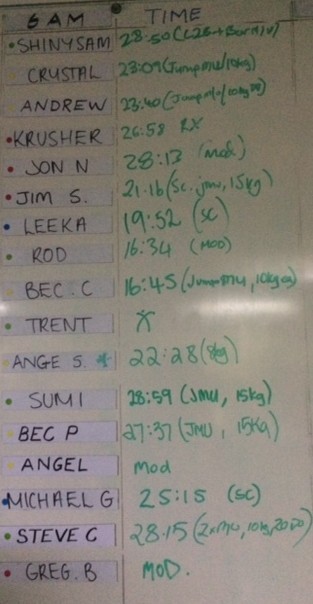 6 AM TIME
SHINYSAM 28:50
CRYSTAL 23:09 (Jump mu/10kg)
ANDREW 23:40
KRUSHER 26:58 RX
JON N 28:13 (mod)
JIM S. 21.16 (Sc. jmu, 15kg)
LEEKA 19:52 (SC)
ROD 16:34 (MOD)
BEC.C 16:45 (Jump mu, 10kg
TRENT X
ANGE S. * 22:28 (8kg)
SUMI 28:59 (JMU, 15kg)
BEC P 27:37 (JMU, 15Kg)
ANGEL mod
MICHAEL G 25:15 (SC)
STEVE C 28.15
GREG.B MOD.